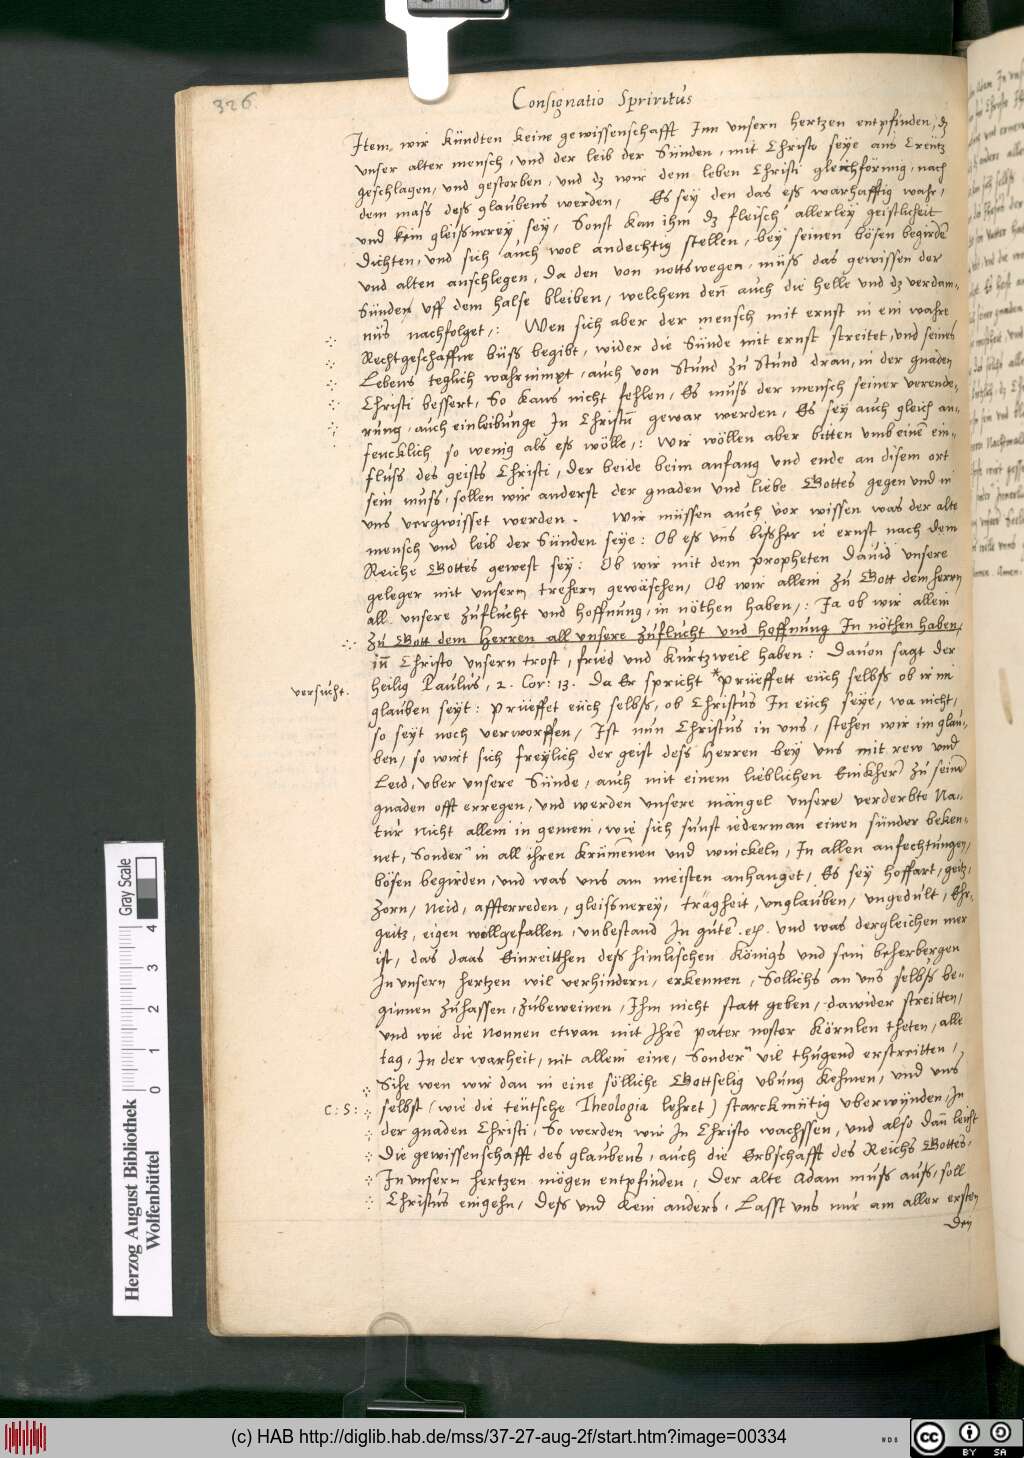 326.
Consignatio Spriritus
Item, wir kündten keine gewissenschafft Inn unsern hertzen entpfinden, dz
unser alter mensch, und der leib der Sünden, mit Christo seye ans Creütz
geschlagen, und gestorben, und dz wir dem leben Christi gleichförmig, nach
dem mass dess glaubens werden, Es sey den das ess warhafftig wahr,
und kein gleißnerey sey, Sonst kan ihm dz fleisch allerley geistlicheit
dichten, und sich auch wol andechtig stellen, bey seinen bösen begirdē
und alten anschlegen, Da den von nottswegen, müß das gewissen der
Sünden uff dem halse bleiben, welchem deñ auch die helle und dz verdam=
nüs nachfolget,: Wen sich aber der mensch mit ernst in ein wahre
Rechtgeschaffne büss begibt, wider die Sünde mit ernst streitet, und seines
Lebens teglich wahrnimpt, auch von Stund zu Stund dran, in der gnaden
Christi bessert, So kans nicht fehlen, Es muss der mensch seiner verende=
rung, auch einleibunge In Christū gewar werden, Es sey auch gleich an=
fencklich so wenig als ess wölle,: Wir wöllen aber bitten umb einē ein=
fluss des geists Christi, der beide beim anfang und ende an disem ort
sein muss, sollen wir anderst der gnaden und liebe Gottes gegen und in
uns vergwisset werden. Wir müssen auch vor wissen was der alte
mensch und leib der Sünden seye: Ob ess uns bißher ie ernst nach dem
Reiche Gottes gewest sey: Ob wir mit dem propheten Dauid unsere
geleger mit unsern trehern gewäschen, Ob wir allein zu Gott dem herrn
all unsere zuflucht und hoffnung, in nöthen haben,: Ja ob wir allein
zu Gott dem Herren all unsere zuflucht und hoffnung In nöthen haben,
iñ Christo unsern trost, fried und kurtzweil haben: Dauon sagt der
versucht.
heilig Paulus, 2. Cor: 13. Da Er spricht *prüeffett euch selbß ob ir im
glauben seyt: prüeffet euch selbß, ob Christus In euch seye, wa nicht,
so seyt noch verworffen, Ist nun Christus in uns, stehen wir im glau=
ben, so wirt sich freylich der geist dess Herren bey uns mit rew und
Leid, uber unsere Sünde, auch mit einem lieblichen Einkherē zu seinē
gnaden offt erregen, und werden unsere mängel unsere verderbte Na=
tur nicht allein in gemein, wie sich sunst iederman einen sünder beken=
net, Sonder in all ihren krümenen und winckeln, In allen anfechtungen,
bösen begirden, und was uns am meisten anhanget, Es sey hoffart, geitz,
zorn, Neid, affterreden, gleißnerey, trägheit, unglauben, ungedult, Ehr=
geitz, eigen wollgefallen, unbestand In gutē. etc. und was dergleichen mer
ist, das daas Einreitthen dess himlischen Königs und sein beherbergen
In unsern hertzen wil verhindern, erkennen, Sollichs an uns selbß be=
ginnen zuhassen, zubeweinen, Ihm nicht statt geben, dawider streitten,
und wie die Nonnen etwan mit Ihrē pater noster körnlen theten, alle
tag, In der warheit, nit allein eine, Sonder vil thugend erstreitten,
Sihe wen wir dan in eine sölliche Gottselig ubung kehmen, und uns
C: S:
selbst (wie die teütsche Theologia lehret) starckmütig uberwünden, In
der gnaden Christi, So werden wir In Christo wachssen, und also dañ leicht
Die gewissenschafft des glaubens, auch die Erbschafft des Reichs Gottes,
In unsern hertzen mögen entpfinden, Der alte Adam muss auß, soll
Christus eingehn, Dess und kein anders, Lasst uns nur am aller ersten
Den
Gray Scale
4 3 2 1 0
Herzog August Bibliothek
Wolfenbüttel
(c) HAB http://diglib.hab.de/mss/37-27-aug-2f/start.htm?image=00334
WDB
cc BY SA